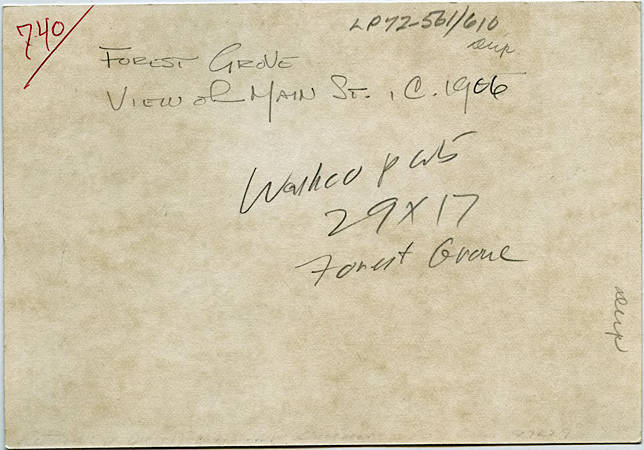 740/
LP72-561/610
dup
FOREST GROVE
VIEW OF MAIN ST., C. 1906
Washco
29X17
Forest Grove
dup